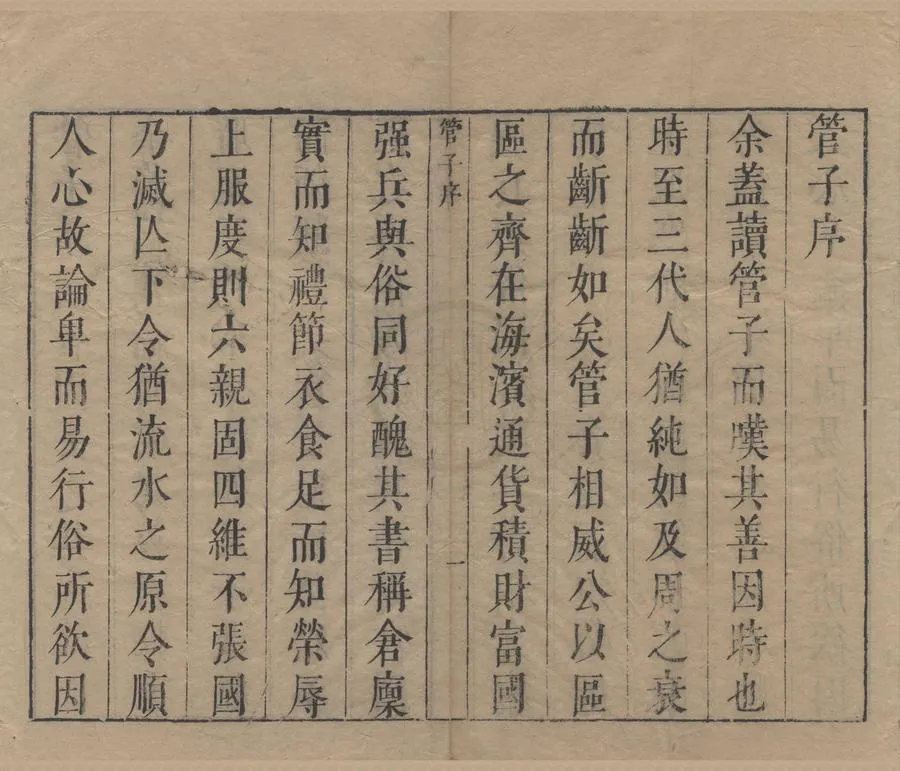 管子序
余蓋讀管子而嘆其善因時也
時至三代人猶純如及周之衰
而齗齗如矣管子相威公以區
區之齊在海濱通貨積財富國
管子序
一
强兵與俗同好醜其書稱倉廩
實而知禮節衣食足而知榮辱
上服度則六親固四維不張國
乃滅亾下令猶流水之原令順
人心故論卑而易行俗所欲因